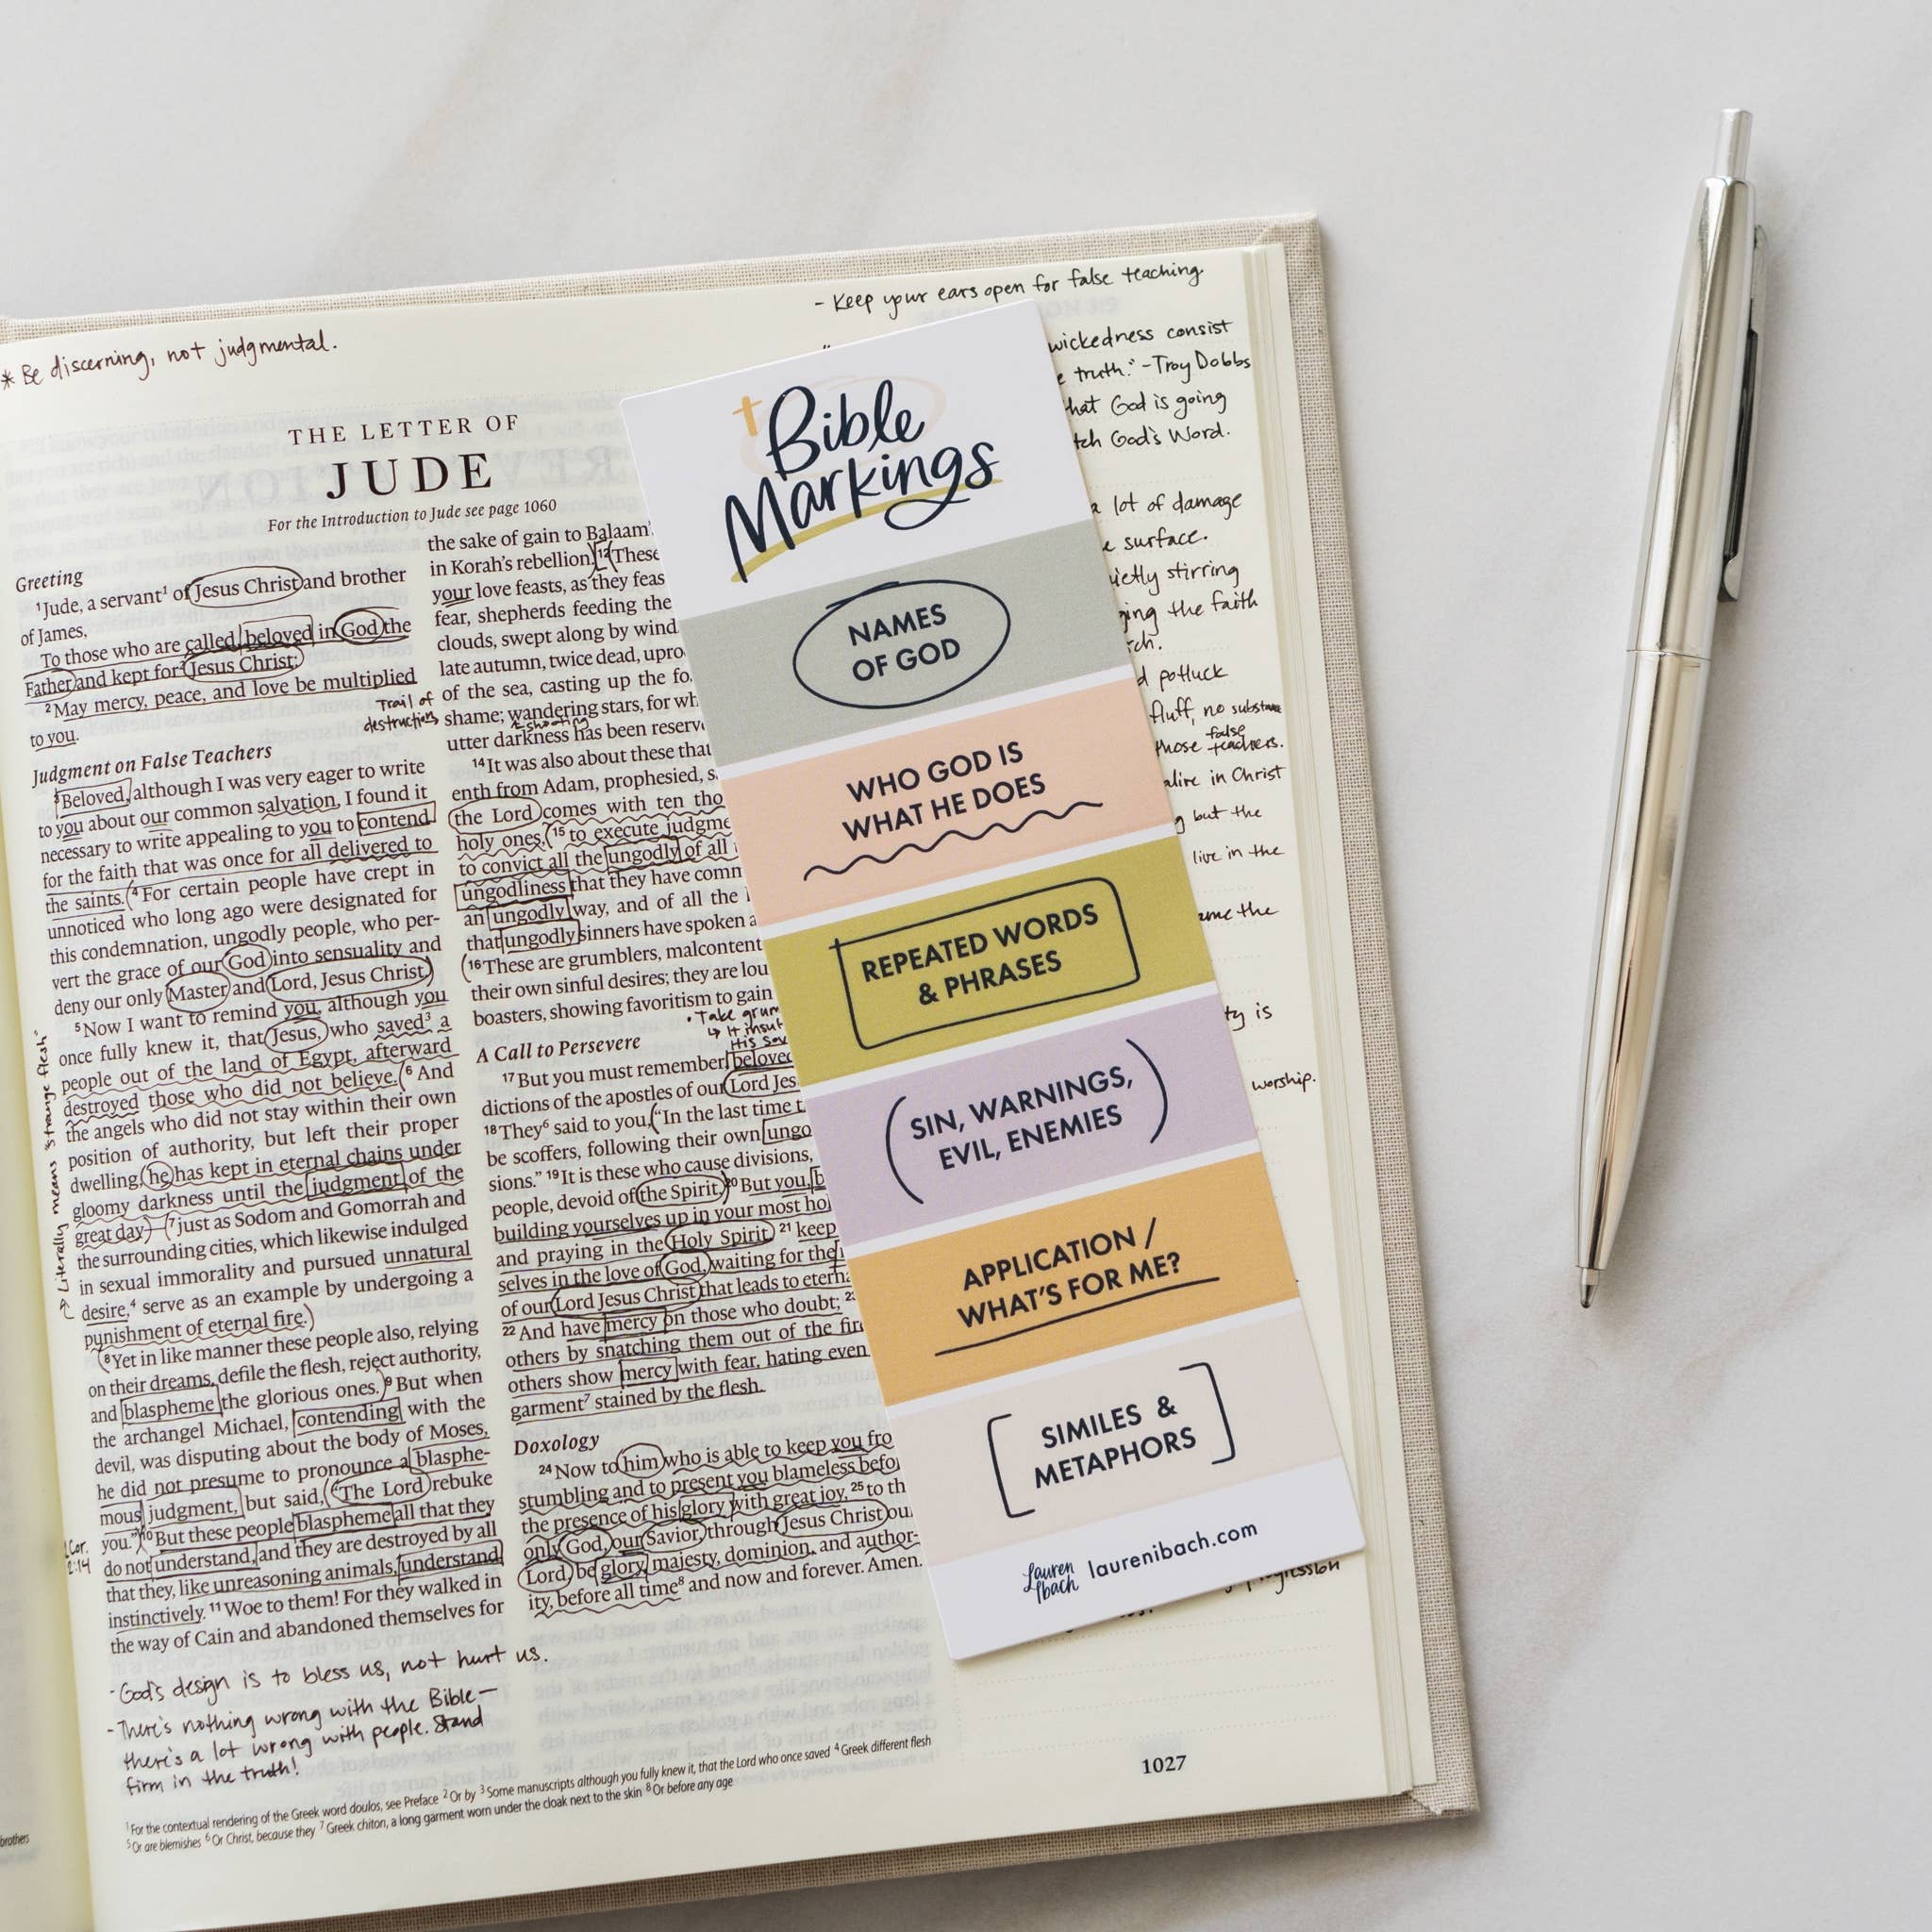 * Be discerning, not judgmental.
- Keep your ears open for false teaching.
THE LETTER OF
JUDE
For the Introduction to Jude see page 1060
Greeting
1Jude, a servant1 of Jesus Christ and brother
of James,
To those who are called, beloved in God the
Father and kept for2 Jesus Christ:
2May mercy, peace, and love be multiplied
to you.
Judgment on False Teachers
3Beloved, although I was very eager to write
to you about our common salvation, I found it
necessary to write appealing to you to contend
for the faith that was once for all delivered to
the saints. 4For certain people have crept in
unnoticed who long ago were designated for
this condemnation, ungodly people, who per-
vert the grace of our God into sensuality and
deny our only Master and Lord, Jesus Christ.
5Now I want to remind you, although you
once fully knew it, that Jesus, who saved3 a
people out of the land of Egypt, afterward
destroyed those who did not believe. 6And
the angels who did not stay within their own
position of authority, but left their proper
dwelling, he has kept in eternal chains under
gloomy darkness until the judgment of the
great day— 7just as Sodom and Gomorrah and
the surrounding cities, which likewise indulged
in sexual immorality and pursued unnatural
desire,4 serve as an example by undergoing a
punishment of eternal fire.
8Yet in like manner these people also, relying
on their dreams, defile the flesh, reject authority,
and blaspheme the glorious ones. 9But when
the archangel Michael, contending with the
devil, was disputing about the body of Moses,
he did not presume to pronounce a blasphe-
mous judgment, but said, "The Lord rebuke
you." 10But these people blaspheme all that they
do not understand, and they are destroyed by all
that they, like unreasoning animals, understand
instinctively. 11Woe to them! For they walked in
the way of Cain and abandoned themselves for
Literally means "strange flesh"
Cor.
2:14
the sake of gain to Balaam'
in Korah's rebellion. 12These
your love feasts, as they feas
fear, shepherds feeding the
clouds, swept along by wind
late autumn, twice dead, upro
of the sea, casting up the fo
shame; wandering stars, for wh
utter darkness has been reserv
Trail of
destruction
shooting
14It was also about these that
enth from Adam, prophesied, s
the Lord comes with ten tho
holy ones, 15to execute judgme
to convict all the ungodly of all
ungodliness that they have comm
an ungodly way, and of all the
that ungodly sinners have spoken a
16These are grumblers, malcontent
their own sinful desires; they are lou
boasters, showing favoritism to gain
• Take grum
It insul
His sov
A Call to Persevere
17But you must remember, beloved
dictions of the apostles of our Lord Jes
18They6 said to you, "In the last time t
be scoffers, following their own ungo
sions." 19It is these who cause divisions,
people, devoid of the Spirit. 20But you, b
building yourselves up in your most hol
and praying in the Holy Spirit, 21keep
selves in the love of God, waiting for the
of our Lord Jesus Christ that leads to eterna
22And have mercy on those who doubt; 23
others by snatching them out of the fire
others show mercy with fear, hating even
garment7 stained by the flesh.
Doxology
24Now to him who is able to keep you fro
stumbling and to present you blameless befo
the presence of his glory with great joy, 25to th
only God, our Savior, through Jesus Christ our
Lord, be glory, majesty, dominion, and author-
ity, before all time8 and now and forever. Amen.
- God's design is to bless us, not hurt us.
- There's nothing wrong with the Bible—
there's a lot wrong with people. Stand
firm in the truth!
1For the contextual rendering of the Greek word doulos, see Preface 2Or by 3Some manuscripts although you fully knew it, that the Lord who once saved 4Greek different flesh
5Or are blemishes 6Or Christ, because they 7Greek chiton, a long garment worn under the cloak next to the skin 8Or before any age
brothers
1027
Bible
Markings
NAMES
OF GOD
WHO GOD IS
WHAT HE DOES
REPEATED WORDS
& PHRASES
(SIN, WARNINGS,
EVIL, ENEMIES)
APPLICATION /
WHAT'S FOR ME?
[SIMILES &
METAPHORS]
Lauren
Ibach
laurenibach.com
wickedness consist
truth." -Troy Dobbs
hat God is going
tch God's Word.
a lot of damage
surface.
ietly stirring
ging the faith
ch.
d potluck
fluff, no substance
those false teachers.
alive in Christ
but the
live in the
ame the
ty is
worship.